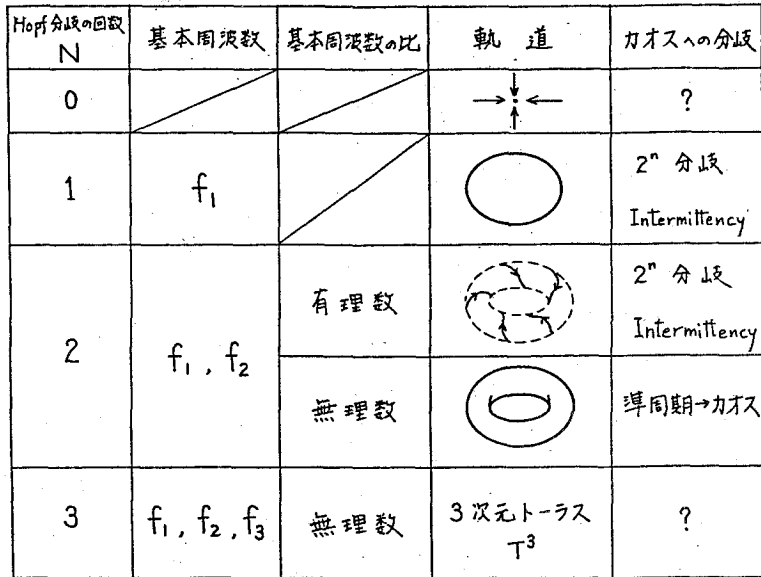 Hopf分岐の回数 N
基本周波数
基本周波数の比
軌道
カオスへの分岐
0
?
1
f₁
2ⁿ 分岐
Intermittency
2
f₁, f₂
有理数
2ⁿ 分岐
Intermittency
無理数
準周期→カオス
3
f₁, f₂, f₃
無理数
3次元トーラス
T³
?